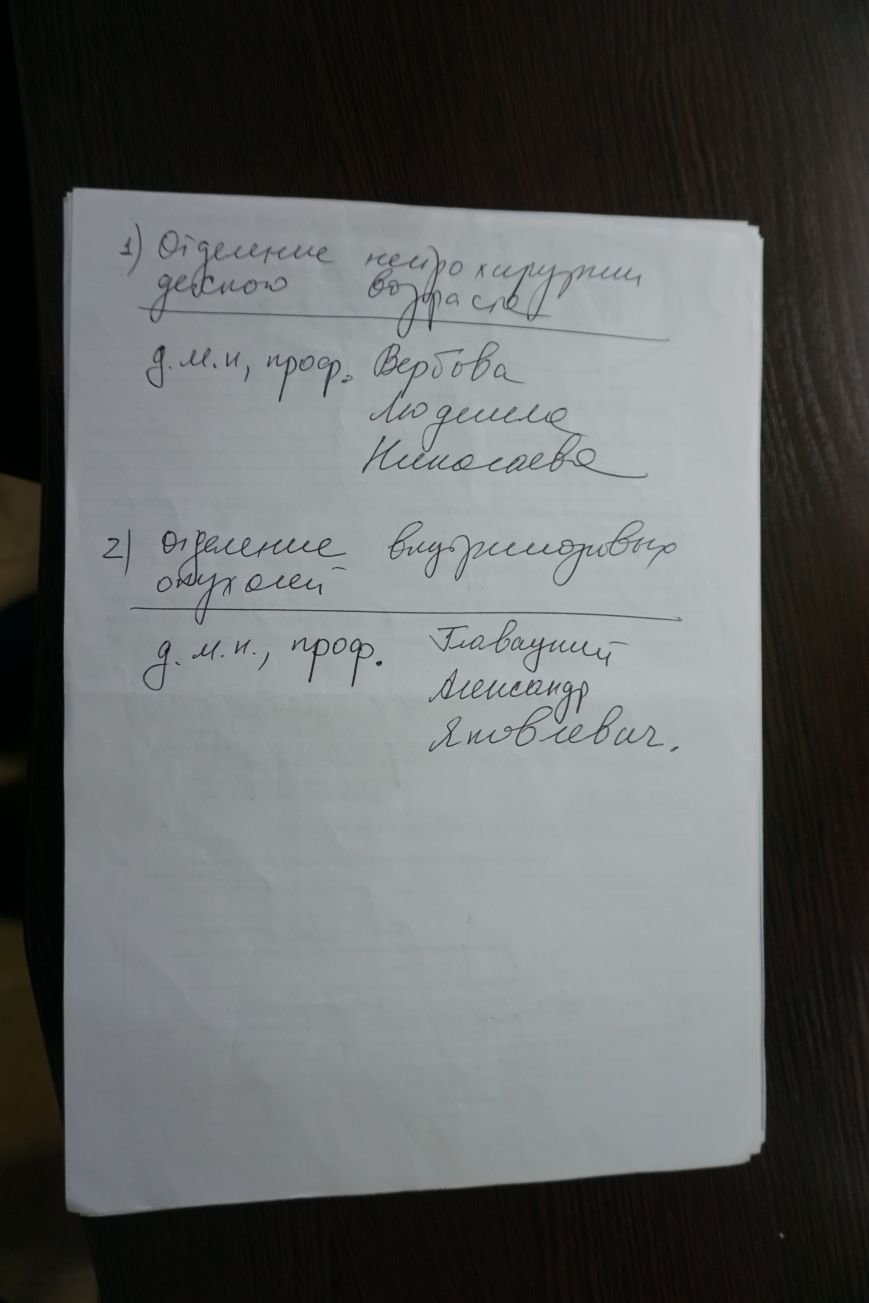 1) Отделение нейрохирургии
детского возраста
д.м.н, проф. Вербова
Людмила
Николаевна
2) Отделение внутримозговых
опухолей
д.м.н., проф. Главацкий
Александр
Яковлевич.